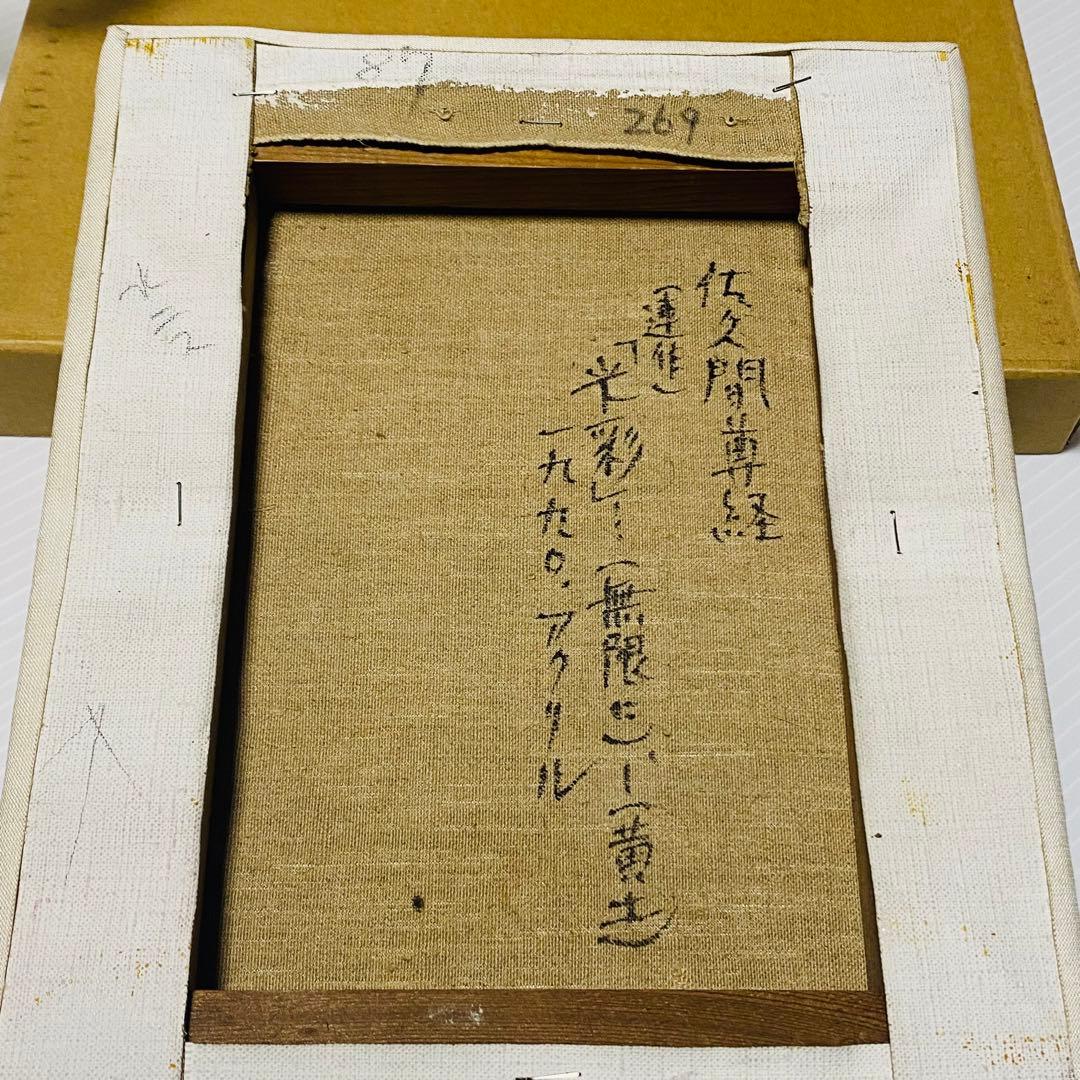 佐久間尊経
(連作)
「光彩」:(無限ヒ)、ー(黄土)
一九九〇.アクリル
89
269